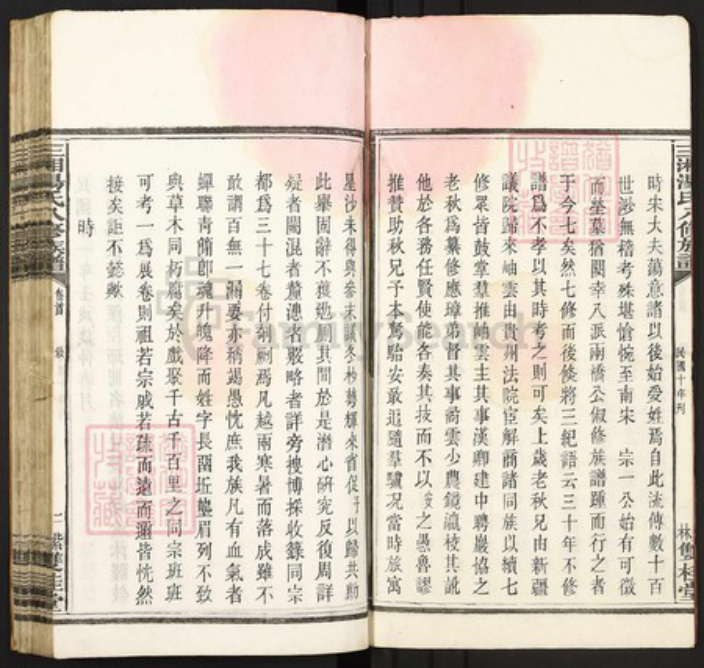 三湘湯氏八修族譜
民國十年刋
林雙桂堂
時宋大夫蕩意諸以後始爰姓焉自此流傳數十百
世渺無稽考殊堪愴惋至南宋 宗一公始有可徵
而塋墓猶闕幸八派兩橋公俶修族譜踵而行之者
于今七矣然七修而後倏將三紀語云三十年不修
譜爲不孝以其時考之則可矣上歲老秋兄由新疆
議院歸來岫雲由貴州法院宦解商諸同族以續七
修眾皆鼓掌羣推岫雲主其事漢卿建中聘巖協之
老秋爲纂修應璋弟督其事蔚雲少農鏡瀛校其訛
他於各務任賢使能各奏其技而不以 之愚魯謬
推贊助秋兄子本駑駘安敢追隨羣驥況當時族寓
星沙未得與參末議冬杪夢輝來省促予以歸共勷
此舉固辭不獲廼則其間於是潛心研究反復周詳
疑者闕混者釐漣者嚴略者詳旁搜博採收錄同宗
都爲三十七卷付剞劂焉凡越兩寒暑而落成雖不
敢謂百無一漏要亦稍竭愚忱庶我族凡有血氣者
蟬聯青簡卽魂升魄降而姓字長留近龍眉列不致
與草木同朽腐矣於戲聚千古千百里之同宗班班
可考一爲展卷則祖若宗戚若疏而遠而邇皆恍然
接矣詎不懿歟
時
三湘湯氏八修族譜
卷首
雙桂堂
FamilySearch